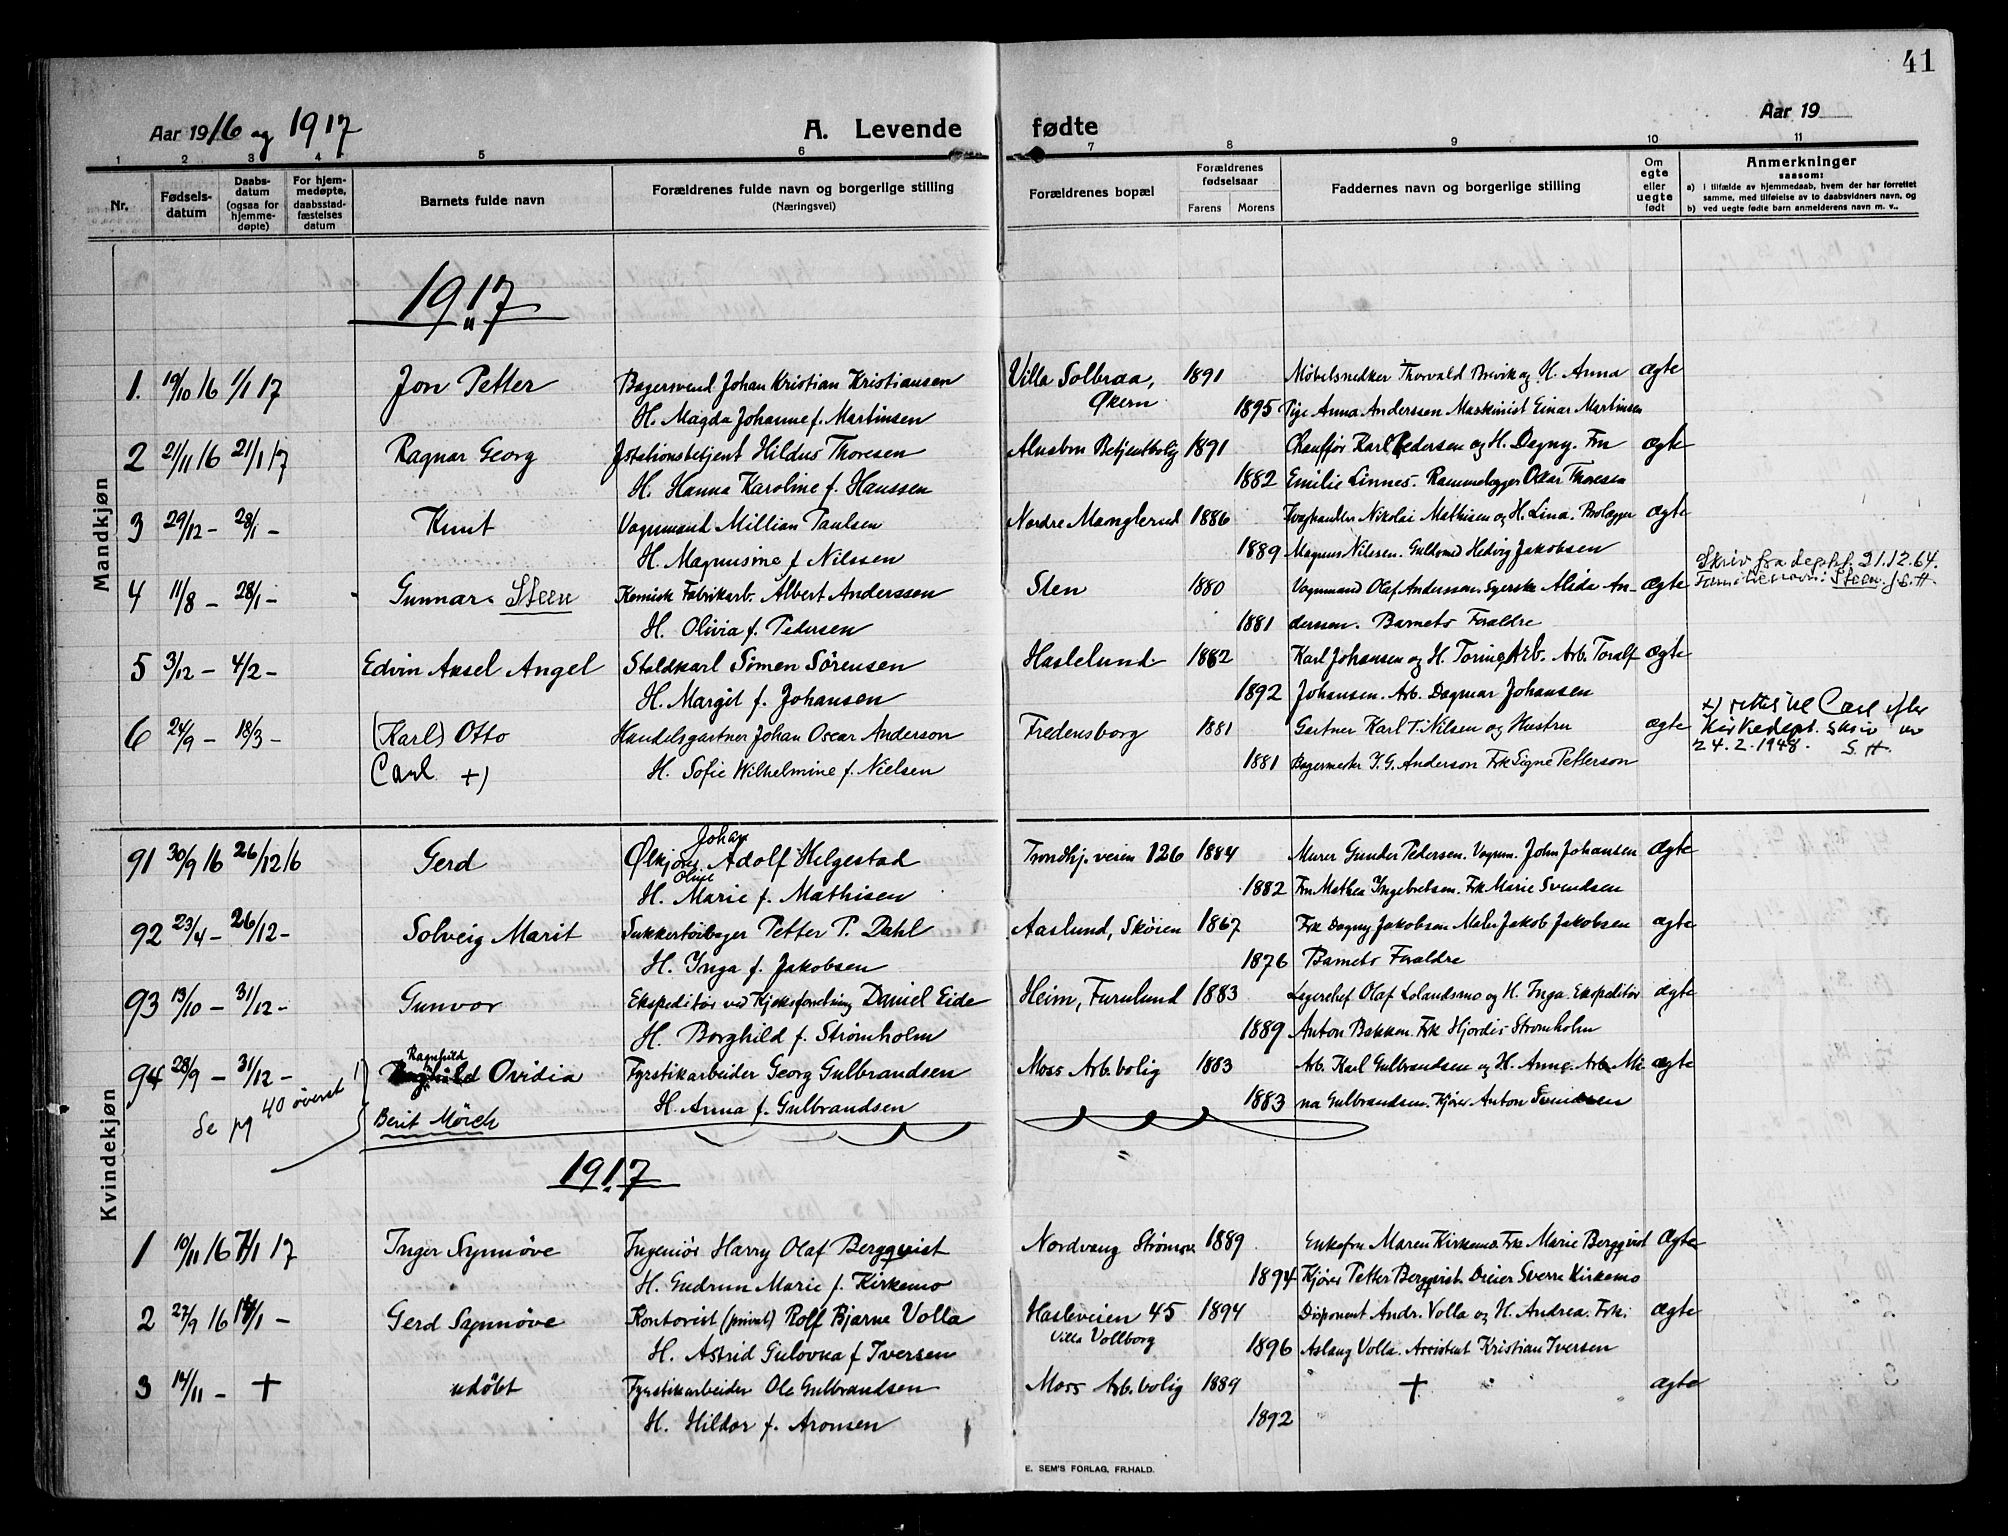 41
Aar 1916 og 1917
A. Levende fødte
Aar 19
1 2 3 4 5 6 7 8 9 10 11
Nr.
Fødsels-
datum
Daabs-
datum
(ogsaa for
hjemme-
døpte)
For hjem-
medøpte,
daabsstad-
fæstelses
datum
Barnets fulde navn
Forældrenes fulde navn og borgerlige stilling
(Næringsvei)
Forældrenes bopæl
Forældrenes
fødselsaar
Farens Morens
Faddernes navn og borgerlige stilling
Om
egte
eller
uegte
født
Anmerkninger
saasom:
a) i tilfælde av hjemmedaab, hvem der har forrettet
samme, med tilføielse av to daabsvidners navn, og
b) ved uegte fødte barn anmelderens navn m. v.,
Mandkjøn
1917
1. 19/10 16 1/1 17 Jon Petter Bagersvend Johan Kristian Kristiansen Villa Solbraa, 1891 Møbelsnedker Thorvald Brevik og H. Anna ægte
H. Magda Johanne f. Martinsen Økern 1895 Pige Anna Anderssen Maskinist Einar Martinsen
2 21/11 16 21/1 17 Ragnar Georg Jstationsbetjent Hildus Thoresen Alnabru Betjentbolig 1891 Chauffør Karl Pedersen og H. Dagny. Fru ægte
H. Hanna Karoline f. Hanssen 1882 Emilie Linnes. Rammelegger Oscar Thoresen
3 29/12 - 28/1 - Knut Vognmand Millian Paulsen Nordre Manglerud 1886 Nikolai Mathisen og H. Lina. Brolegger ægte
H. Magnusine f. Nilssen 1889 Magnus Nilssen. Hedvig Jakobsen
Skriv fra dep. 21.12.64.
4 11/8 - 28/1 - Gunnar Steen Kemisk Fabrikarb. Albert Anderssen Sten 1880 Vognmand Olaf Anderssen. Syerske Alida An- ægte Steen. S.H.
H. Olivia f. Pedersen 1881 derssen. Barnets Forældre
5 3/12 - 4/2 - Edvin Aksel Angel Staldkarl Simen Sørensen Haslelund 1882 Karl Johansen og H. Torine, Arb. Arb. Toralf ægte
H. Margit f. Johansen 1892 Johansen. Arb. Dagmar Johansen
+) rettes til Carl efter
6 24/9 - 18/3 - (Karl) Otto Handelsgartner Johan Oscar Anderson Fredensborg 1881 Gartner Karl T. Nilsen og Hustru ægte Kirkedept. skriv av
Carl +) H. Sofie Wilhelmine f. Nielsen 1881 Bagermester J. G. Anderson Frk Signe Petterson 24.2.1948. S.H.
Kvindekjøn
91 30/9 16 26/12 16 Gerd Ølkjører Johan Adolf Helgestad Trondhj.veien 126 1884 Murer Gunder Pedersen. Vognm. John Johansen ægte
H. Oline Marie f. Mathisen 1882 Fru Mathea Ingebretsen. Frk Marie Svendsen
92 23/4 - 26/12 - Solveig Marit Sukkertøibager Petter P. Dahl Aaslund, Skøien 1867 Frk Dagny Jakobsen Maler Jakob Jakobsen ægte
H. Inga f. Jakobsen 1876 Barnets Forældre
93 13/10 - 31/12 - Gunvor Ekspeditør ved Kjeksforretning Daniel Eide Heim, Furulund 1883 Lagerchef Olaf Lolandsmo og H. Inga. Ekspeditør ægte
H. Borghild f. Strømholm 1889 Anton Bakken. Frk Hjordis Strømholm
94 28/9 - 31/12 - Ragnhild Ovidia Fyrstikarbeider Georg Gulbrandsen Moss Arb.bolig 1883 Arb. Karl Gulbrandsen og H. Anne. Arb. Mi- ægte
Se pg 40 øverst Berit Mörch H. Anna f. Gulbrandsen 1883 na Gulbrandsen. Kjører Anton Svendsen
1917
1 10/11 16 7/1 17 Inger Synnøve Ingeniør Harry Olaf Bergqvist Nordvang 1889 Enkefru Maren Kirkemo. Frk Marie Bergqvist ægte
H. Gudrun Marie f. Kirkemo 1894 Kjører Petter Bergqvist. Dreier Sverre Kirkemo
2 27/9 16 14/1 - Gerd Synnøve Kontorist (privat) Rolf Bjarne Volla Hasleveien 45 1894 Disponent Andr. Volla og H. Andrea. Frk. ægte
H. Astrid Gulovna f Iversen Villa Vollborg 1896 Aslaug Volla. Assistent Kristian Iversen
3 14/11 - + udöbt Fyrstikarbeider Ole Gulbrandsen Moss Arb.bolig 1889 + ægte
H. Hildor f. Aronsen 1892
E. SEM'S FORLAG, FR.HALD.